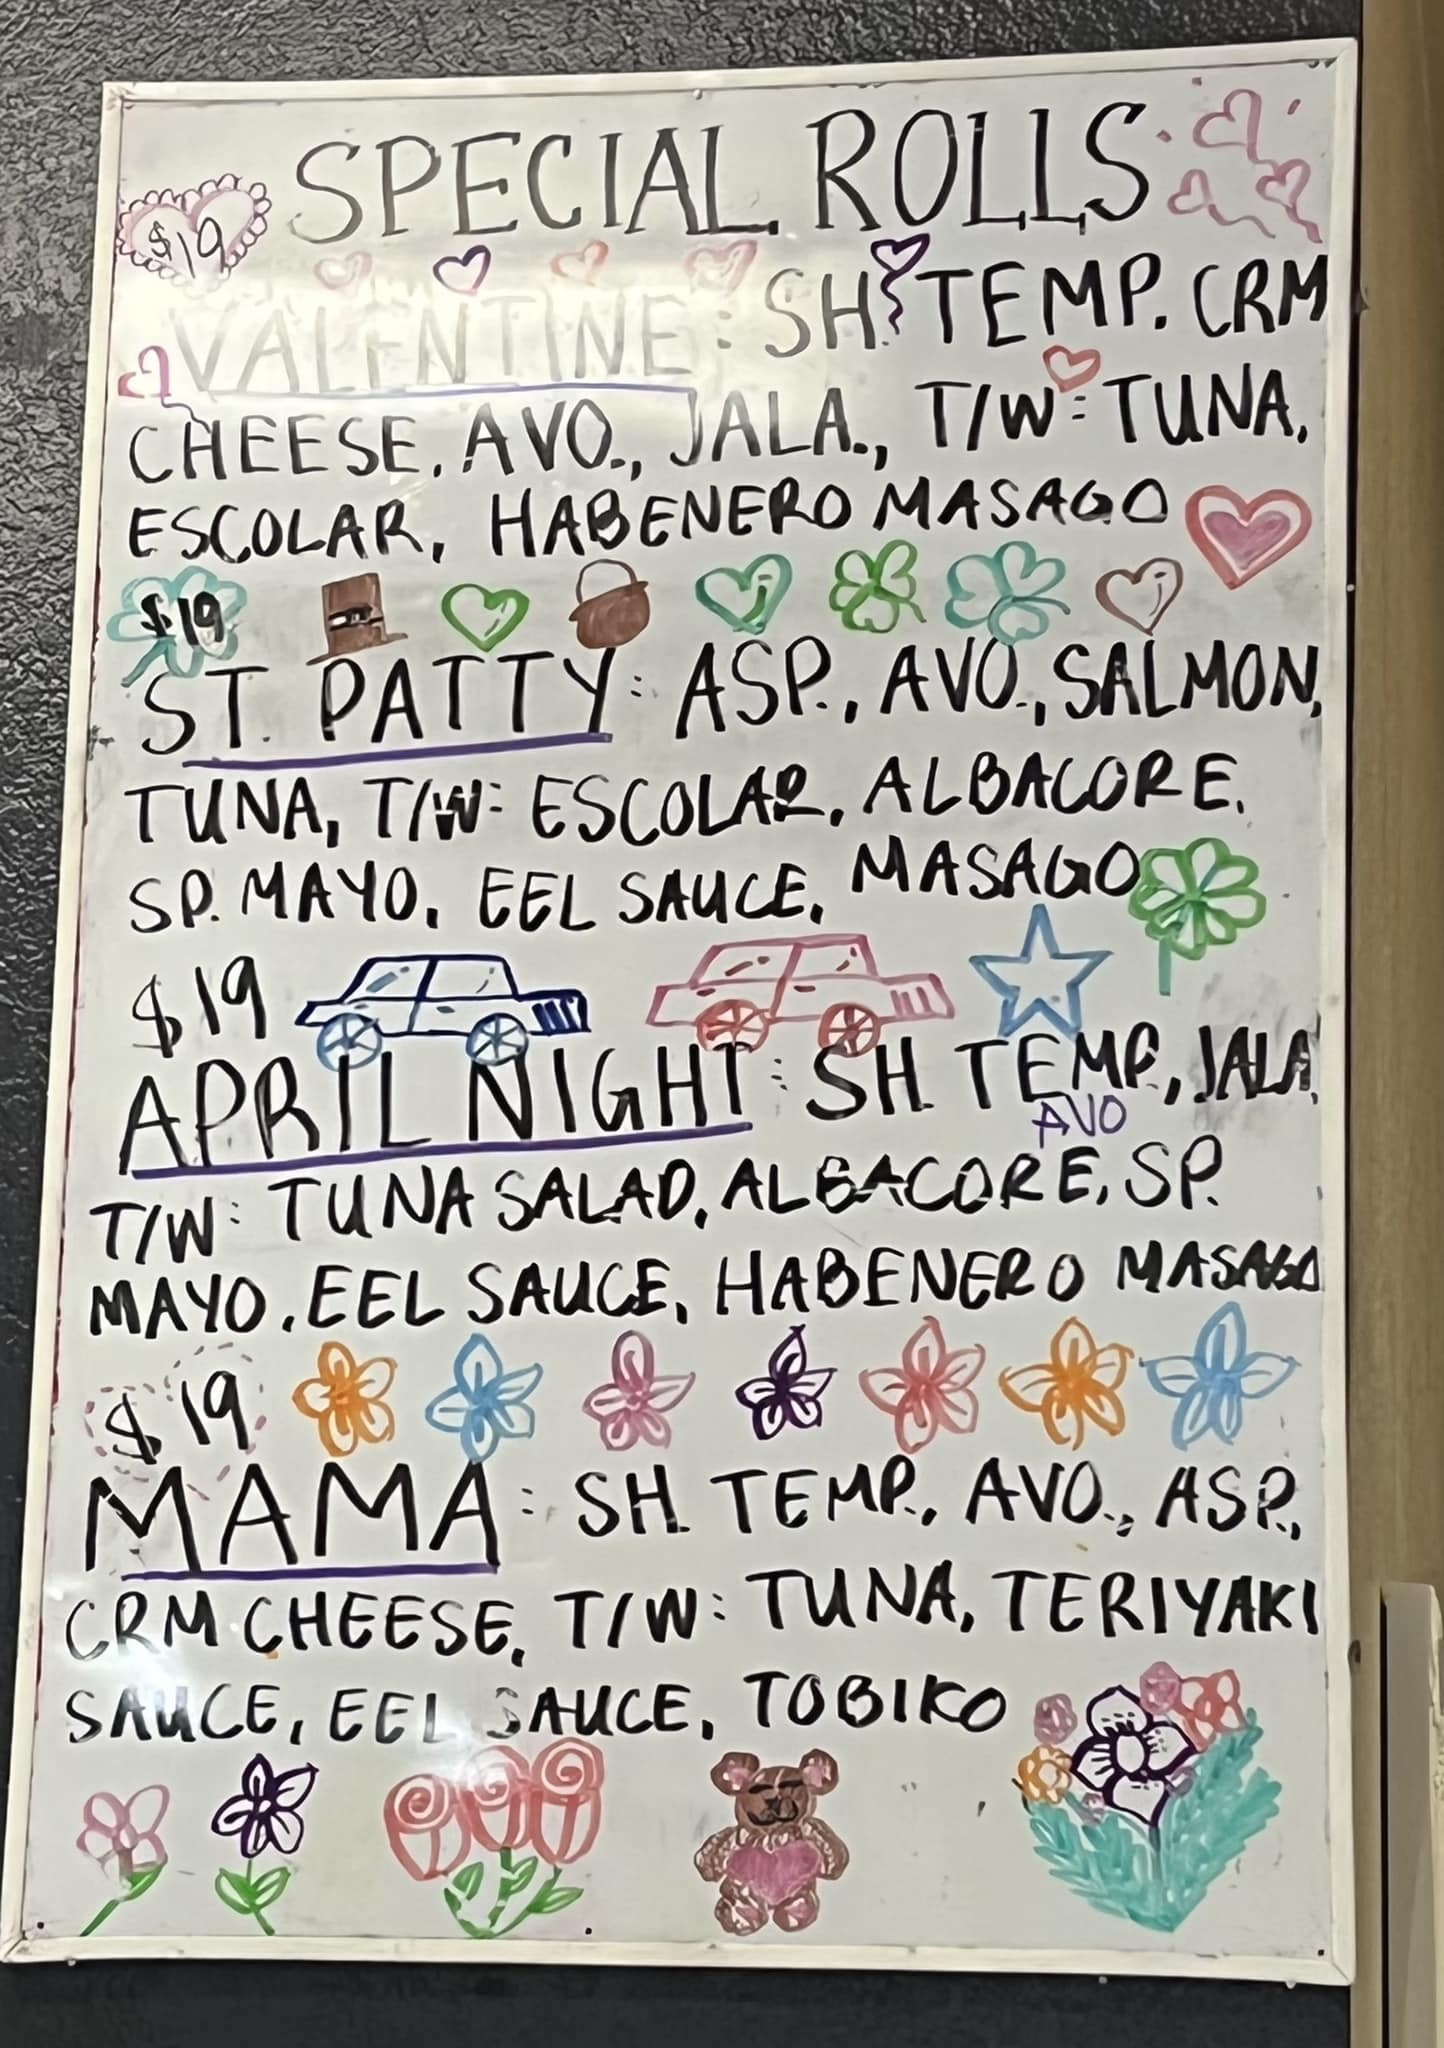 SPECIAL ROLLS
$19
VALENTINE: SH. TEMP. CRM
CHEESE, AVO., JALA., T/W: TUNA,
ESCOLAR, HABENERO MASAGO
$19
ST. PATTY: ASP., AVO., SALMON,
TUNA, T/W: ESCOLAR, ALBACORE,
SP. MAYO, EEL SAUCE, MASAGO
$19
APRIL NIGHT: SH. TEMP., JALA,
AVO
T/W: TUNA SALAD, ALBACORE, SP.
MAYO, EEL SAUCE, HABENERO MASAGO
$19
MAMA: SH. TEMP., AVO., ASP.,
CRM CHEESE, T/W: TUNA, TERIYAKI
SAUCE, EEL SAUCE, TOBIKO